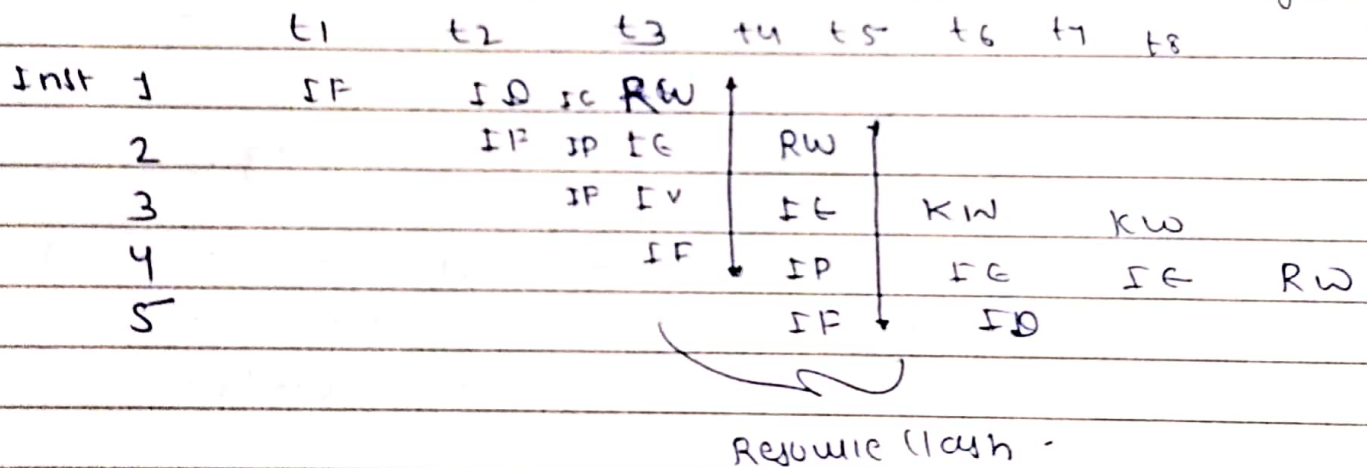 t1 t2 t3 t4 t5 t6 t7 t8
Inst 1 IF ID IE RW
2 IF ID IE RW
3 IF ID IE RW RW
4 IF ID IE IE RW
5 IF ID
Resource Clash -